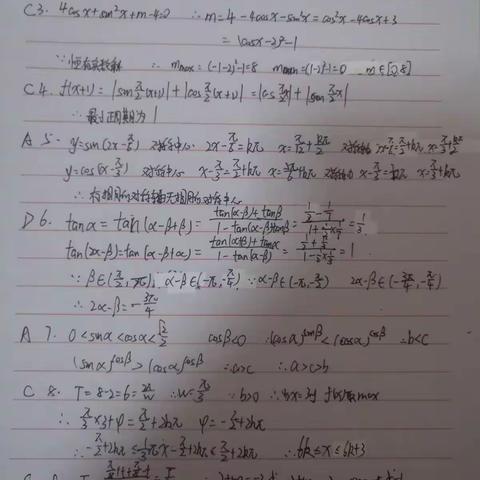 C3. 4cosx+sin²x+m-4=0 ∴m=4-4cosx-sin²x=cos²x-4cosx+3
=(cosx-2)²-1
∵恒有实数解 ∴ mmax=(-1-2)²-1=8 mmin=(1-2)²-1=0 m∈[0,8]
C4. f(x+1)=|sin π/2(x+1)|+|cos π/2(x+1)|=|cos π/2x|+|sin π/2x|
∴最小正周期为1
A 5. y=sin(2x-π/6) 对称中心 2x-π/6=kπ x=π/12+kπ/2 对称轴 2x-π/6=π/2+kπ x=π/3+kπ/2
y=cos(x-π/3) 对称中心 x-π/3=π/2+kπ x=5π/6+kπ 对称轴 x-π/3=kπ x=π/3+kπ
∴有相同的对称轴无相同的对称中心
D6. tanα=tan(α-β+β)=(tan(α-β)+tanβ)/(1-tan(α-β)tanβ)=(1/2-1/7)/(1+1/2×1/7)=1/3
tan(2α-β)=tan(α-β+α)=(tan(α-β)+tanα)/(1-tan(α-β))=(1/2+1/3)/(1-1/2×1/3)=1
∵β∈(π/2,π), α-β∈(-π,-π/4) ∵α-β∈(-π,-π/2) 2α-β∈(-3π/4,-π/4)
∴2α-β=-3π/4
A 7. 0<sinα<cosα<√2/2 cosβ<0 ∴(cosα)^sinβ<(cosα)^cosβ ∴b<c
(sinα)^cosβ>(cosα)^cosβ ∴a>c ∴a>c>b
C 8. T=8-2=6=2π/w ∴w=π/3 ∵b>0 ∴当x=3时 f(x)取max
∴ π/3×3+φ=π/2+2kπ φ=-π/2+2kπ
∴-π/2+2kπ≤1/3πx-π/2+2kπ≤π/2+2kπ ∴6k≤x≤6k+3